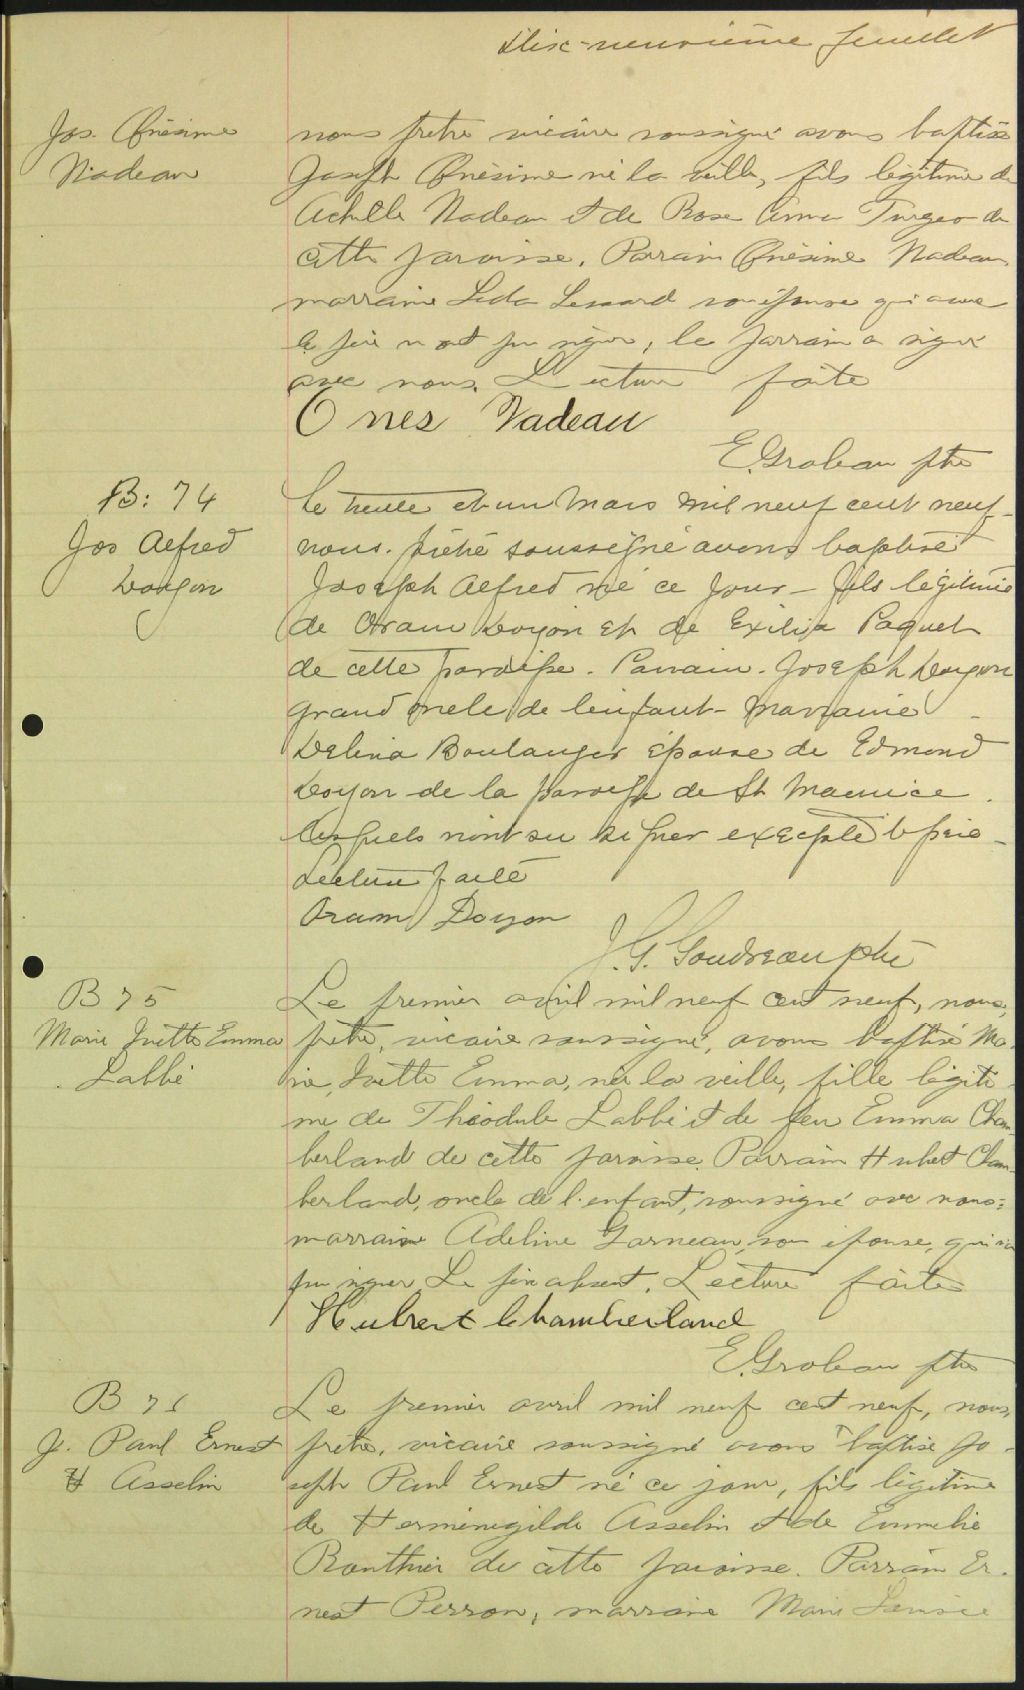 Dix-neuvième feuillet
Jos. Onésime
Nadeau
nous prêtre vicaire soussigné avons baptisé
Joseph Onésime né la veille, fils légitime de
Achille Nadeau et de Rose Anna Turgeo de
cette paroisse. Parrain Onésime Nadeau,
marraine Léda Lessard son épouse qui avec
le père n'ont pu signer, le parrain a signé
avec nous. Lecture faite
Ones Nadeau
E. Grobeau ptre
B: 74
Jos Alfred
Doyon
Le trente et un Mars mil neuf cent neuf_
nous. prêtre soussigné avons baptisé
Joseph Alfred né ce jour_ fils légitime
de Oram Doyon et de Exilia Paquet
de cette paroisse. Parrain. Joseph Doyon
grand oncle de l'enfant_ Marraine
Delina Boulanger épouse de Edmond
Doyon de la paroisse de St Maurice.
lesquels n'ont su signer excepté le père_
Lecture faite
Oram Doyon
J. G. Goudreau ptre
B 75
Marie Ivette Emma
Labbé
Le premier avril mil neuf cent neuf, nous,
prêtre, vicaire soussigné, avons baptisé Ma-
rie, Ivette Emma, née la veille, fille légiti-
me de Théodule Labbé et de feu Emma Cham-
berland de cette paroisse. Parrain Hubert Cham-
berland, oncle de l'enfant, soussigné avec nous:
marraine Adeline Garneau, son épouse, qui n'a
pu signer. Le père absent. Lecture faite
Hubert Chamberland
E. Grobeau ptre
B 76
J. Paul Ernest
Asselin
Le premier avril mil neuf cent neuf, nous,
prêtre, vicaire soussigné avons baptisé Jo-
seph Paul Ernest né ce jour, fils légitime
de Herménégilde Asselin et de Emmelie
Routhier de cette paroisse. Parrain Er-
nest Perron, marraine Marie Louise